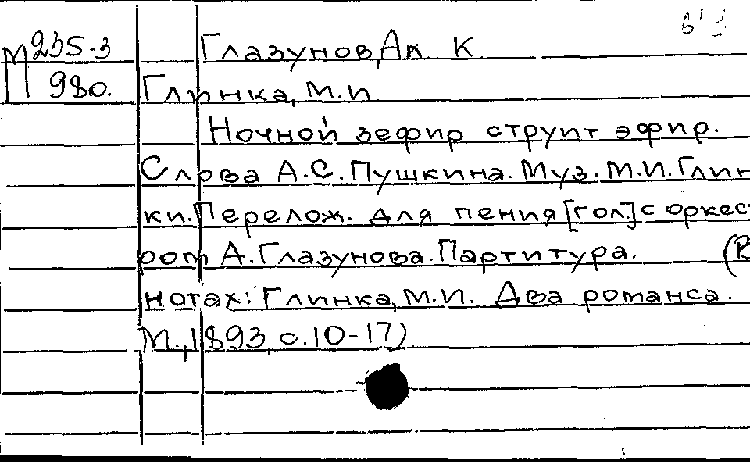 М 235-3 Глазунов, Ал. К
П 980. Глинка, М.И.
Ночной зефир струит эфир.
Слова А.С. Пушкина. Муз. М.И. Глин
ки. Перелож. для пения [гол.] с оркес
ром А. Глазунова. Партитура. (В
нотах: Глинка, М.И. Два романса.
М., 1893, с. 10-17)